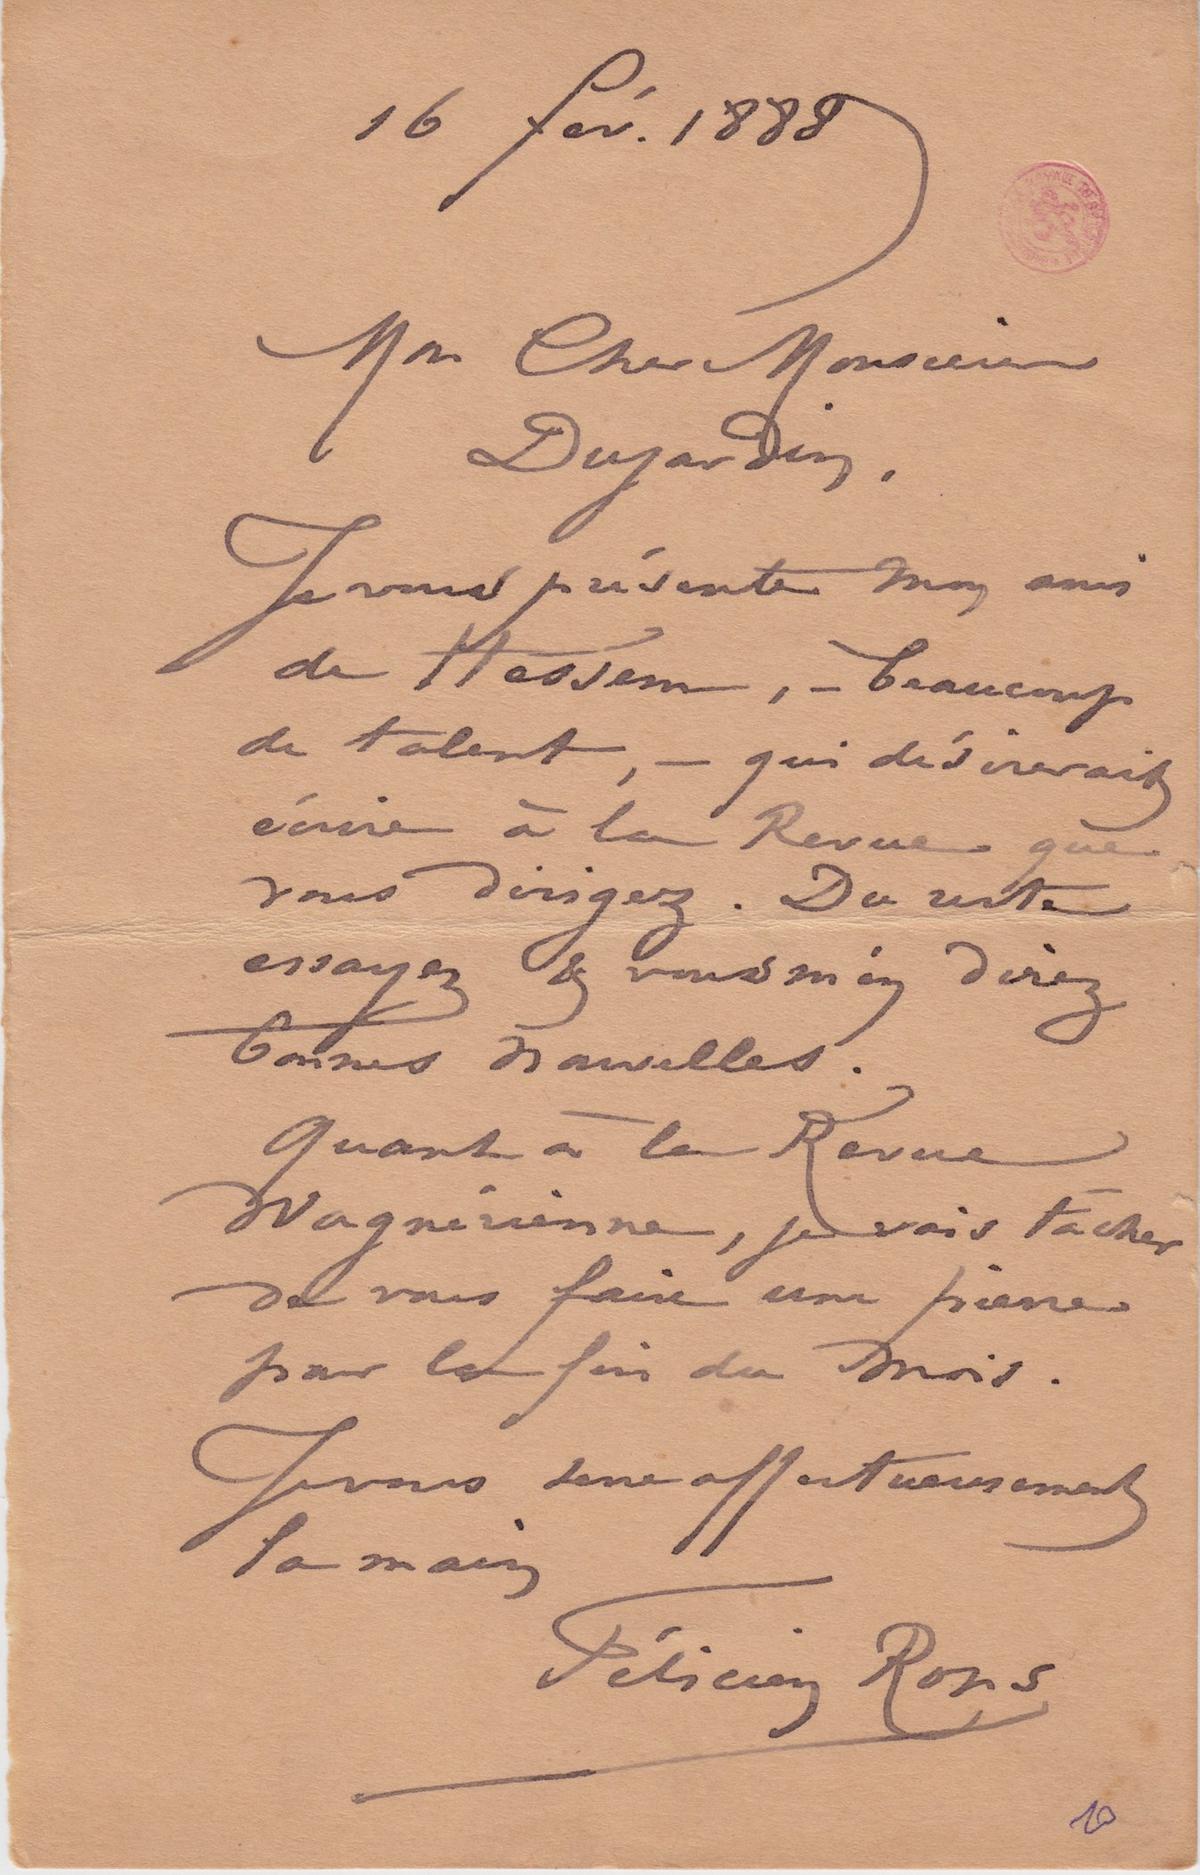 16 fév. 1888
Mon Cher Monsieur
Dujardin,
Je vous présente mon ami
de Hessem, – beaucoup
de talent, – qui désirerait
écrire à la Revue que
vous dirigez. Du reste
essayez & vous m'en direz
bonnes nouvelles.
Quant à la Revue
Wagnérienne, je vais tâcher
de vous faire une pierre
pour la fin du mois.
Je vous serre affectueusement
la main
Félicien Rops
10